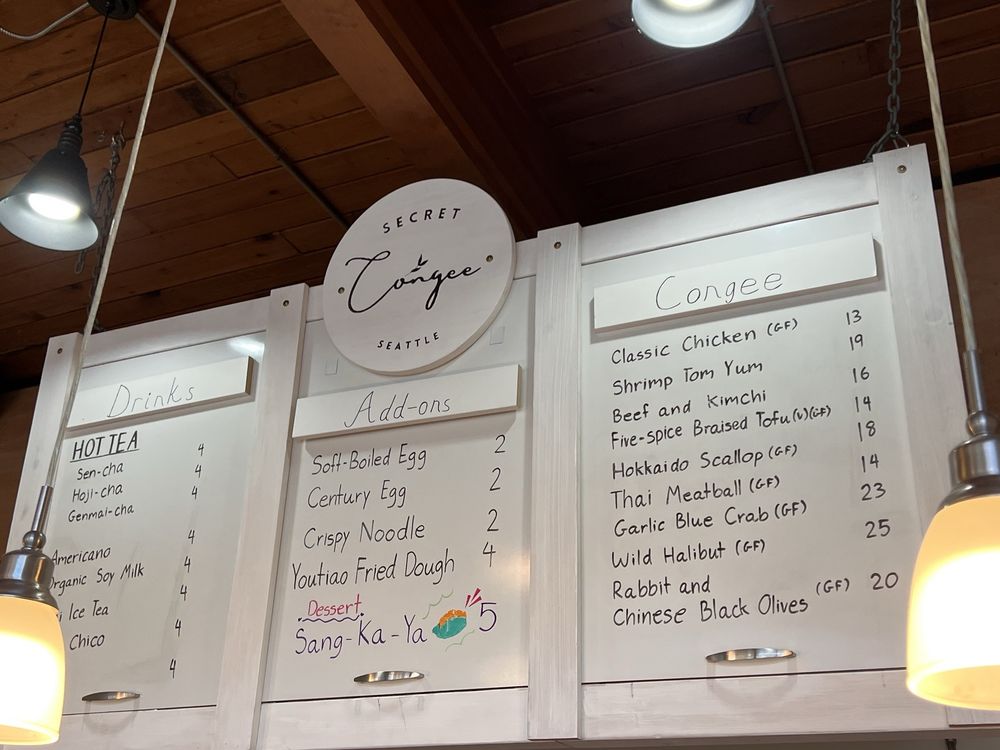 SECRET
Congee
SEATTLE
Drinks
HOT TEA
Sen-cha 4
Hoji-cha 4
Genmai-cha 4
Americano 4
Organic Soy Milk 4
Ice Tea 4
Chico 4
4
Add-ons
Soft-Boiled Egg 2
Century Egg 2
Crispy Noodle 2
Youtiao Fried Dough 4
Dessert
Sang-Ka-Ya 5
Congee
Classic Chicken (GF) 13
Shrimp Tom Yum 19
Beef and Kimchi 16
Five-spice Braised Tofu (V)(GF) 14
Hokkaido Scallop (GF) 18
Thai Meatball (GF) 14
Garlic Blue Crab (GF) 23
Wild Halibut (GF) 25
Rabbit and
Chinese Black Olives (GF) 20